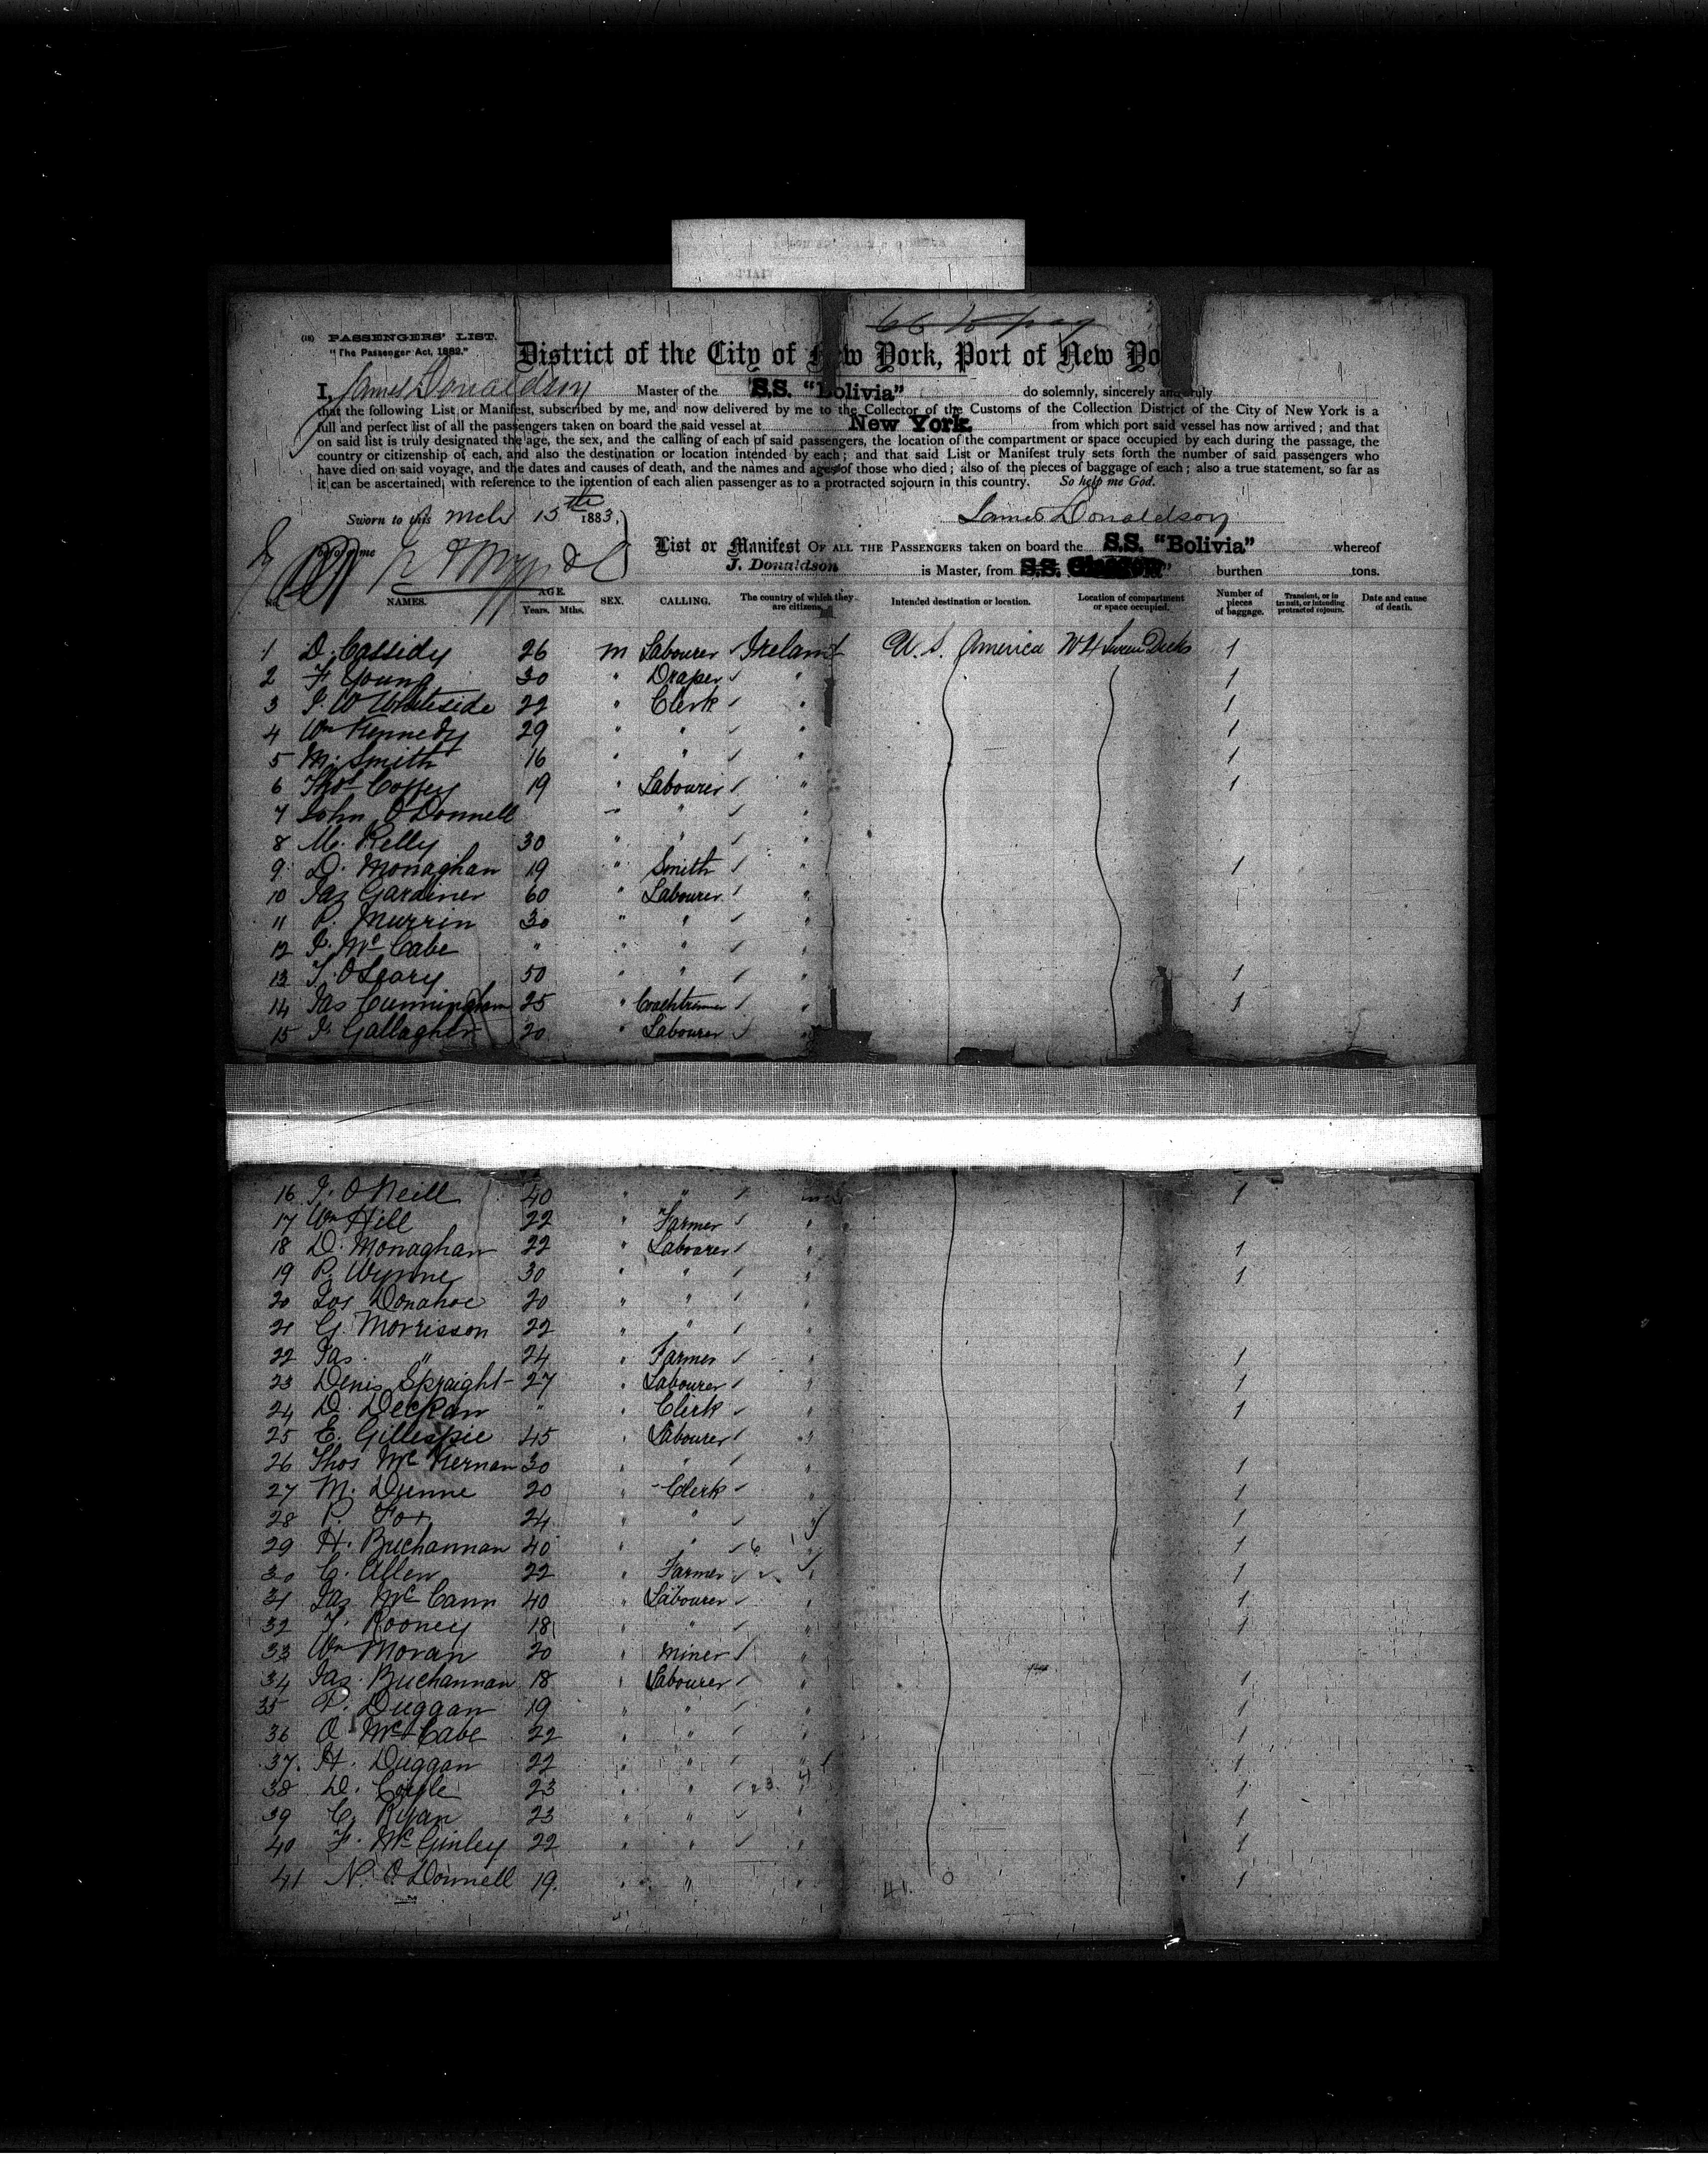 (18) PASSENGERS' LIST.
"The Passenger Act, 1882."
District of the City of New York, Port of New Yo
I, James Donaldson Master of the S.S. "Bolivia" do solemnly, sincerely and truly
that the following List or Manifest, subscribed by me, and now delivered by me to the Collector of the Customs of the Collection District of the City of New York is a
full and perfect list of all the passengers taken on board the said vessel at New York from which port said vessel has now arrived; and that
on said list is truly designated the age, the sex, and the calling of each of said passengers, the location of the compartment or space occupied by each during the passage, the
country or citizenship of each, and also the destination or location intended by each; and that said List or Manifest truly sets forth the number of said passengers who
have died on said voyage, and the dates and causes of death, and the names and ages of those who died; also of the pieces of baggage of each; also a true statement, so far as
it can be ascertained, with reference to the intention of each alien passenger as to a protracted sojourn in this country. So help me God.
Sworn to this Mch 15th 1883. James Donaldson
before me
List or Manifest OF ALL THE PASSENGERS taken on board the S.S. "Bolivia" whereof
J. Donaldson is Master, from S.S. Glasgow burthen tons.
No. NAMES. AGE. Years. Mths. SEX. CALLING. The country of which they are citizens. Intended destination or location. Location of compartment or space occupied. Number of pieces of baggage. Transient, or in transit, or intending protracted sojourn. Date and cause of death.
1 D. Cassidy 26 m Labourer Ireland U. S. America Decks 1
2 F Young 30 " Draper " 1
3 J. W Whiteside 22 " Clerk " 1
4 Wm Kennedy 29 " " " 1
5 M. Smith 16 " " " 1
6 Thos Coffey 19 " Labourer " 1
7 John O'Donnell " "
8 M. Kelly 30 " " "
9 D. Monaghan 19 " Smith " 1
10 Jas Gardiner 60 " Labourer "
11 P. Murrin 30 " " "
12 J. McCabe " " " "
13 T. O'Leary 50 " " " 1
14 Jas Cunningham 25 " " 1
15 J. Gallagher 20 " Labourer "
16 J. O'Neill 40 " " 1
17 Wm Hill 22 " Farmer "
18 D. Monaghan 22 " Labourer " 1
19 P. Wynne 30 " " " 1
20 Jos Donahoe 20 " " "
21 G. Morrisson 22 " " "
22 Jas " 24 " Farmer " 1
23 Denis Spraight 27 " Labourer " 1
24 D. Deckan " " Clerk " 1
25 E. Gillespie 45 " Labourer "
26 Thos McKernan 30 " " " 1
27 M. Dunne 20 " Clerk " 1
28 P. Fox 24 " " " 1
29 H. Buchannan 40 " " " 1
30 C. Allen 22 " Farmer " 1
31 Jas McCann 40 " Labourer " 1
32 T. Rooney 18 " " " 1
33 Wm Moran 20 " Miner "
34 Jas. Buchannan 18 " Labourer " 1
35 P. Duggan 19 " " " 1
36 O McCabe 22 " " " 1
37. H. Duggan 22 " " " 1
38 D. Coyle 23 " " " 1
39 C. Ryan 23 " " " 1
40 F. McGinley 22 " " " 1
41 N. O'Donnell 19. " " " 1
41.